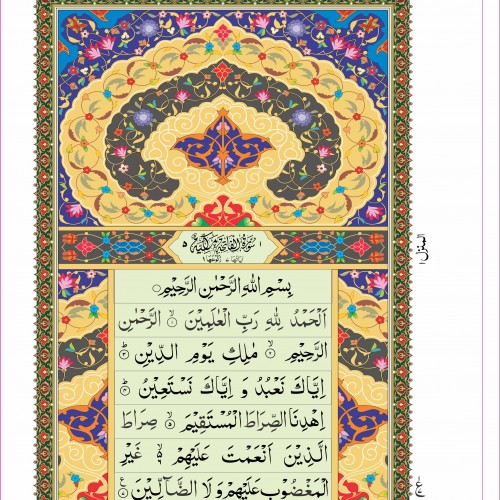 ۱ سُوْرَةُ الْفَاتِحَةِ مَكِّيَّةٌ ۵
اٰیاتها ۷ رکوعها ۱
بِسْمِ اللهِ الرَّحْمٰنِ الرَّحِیْمِ
اَلْحَمْدُ لِلّٰهِ رَبِّ الْعٰلَمِیْنَ ۙ۱ الرَّحْمٰنِ
الرَّحِیْمِ ۙ۲ مٰلِكِ یَوْمِ الدِّیْنِ ؕ۳
اِیَّاكَ نَعْبُدُ وَ اِیَّاكَ نَسْتَعِیْنُ ؕ۴
اِهْدِنَا الصِّرَاطَ الْمُسْتَقِیْمَ ۙ۵ صِرَاطَ
الَّذِیْنَ اَنْعَمْتَ عَلَیْهِمْ ۙ۬۶ غَیْرِ
الْمَغْضُوْبِ عَلَیْهِمْ وَ لَا الضَّآلِّیْنَ ۠۷
المنزل ۱